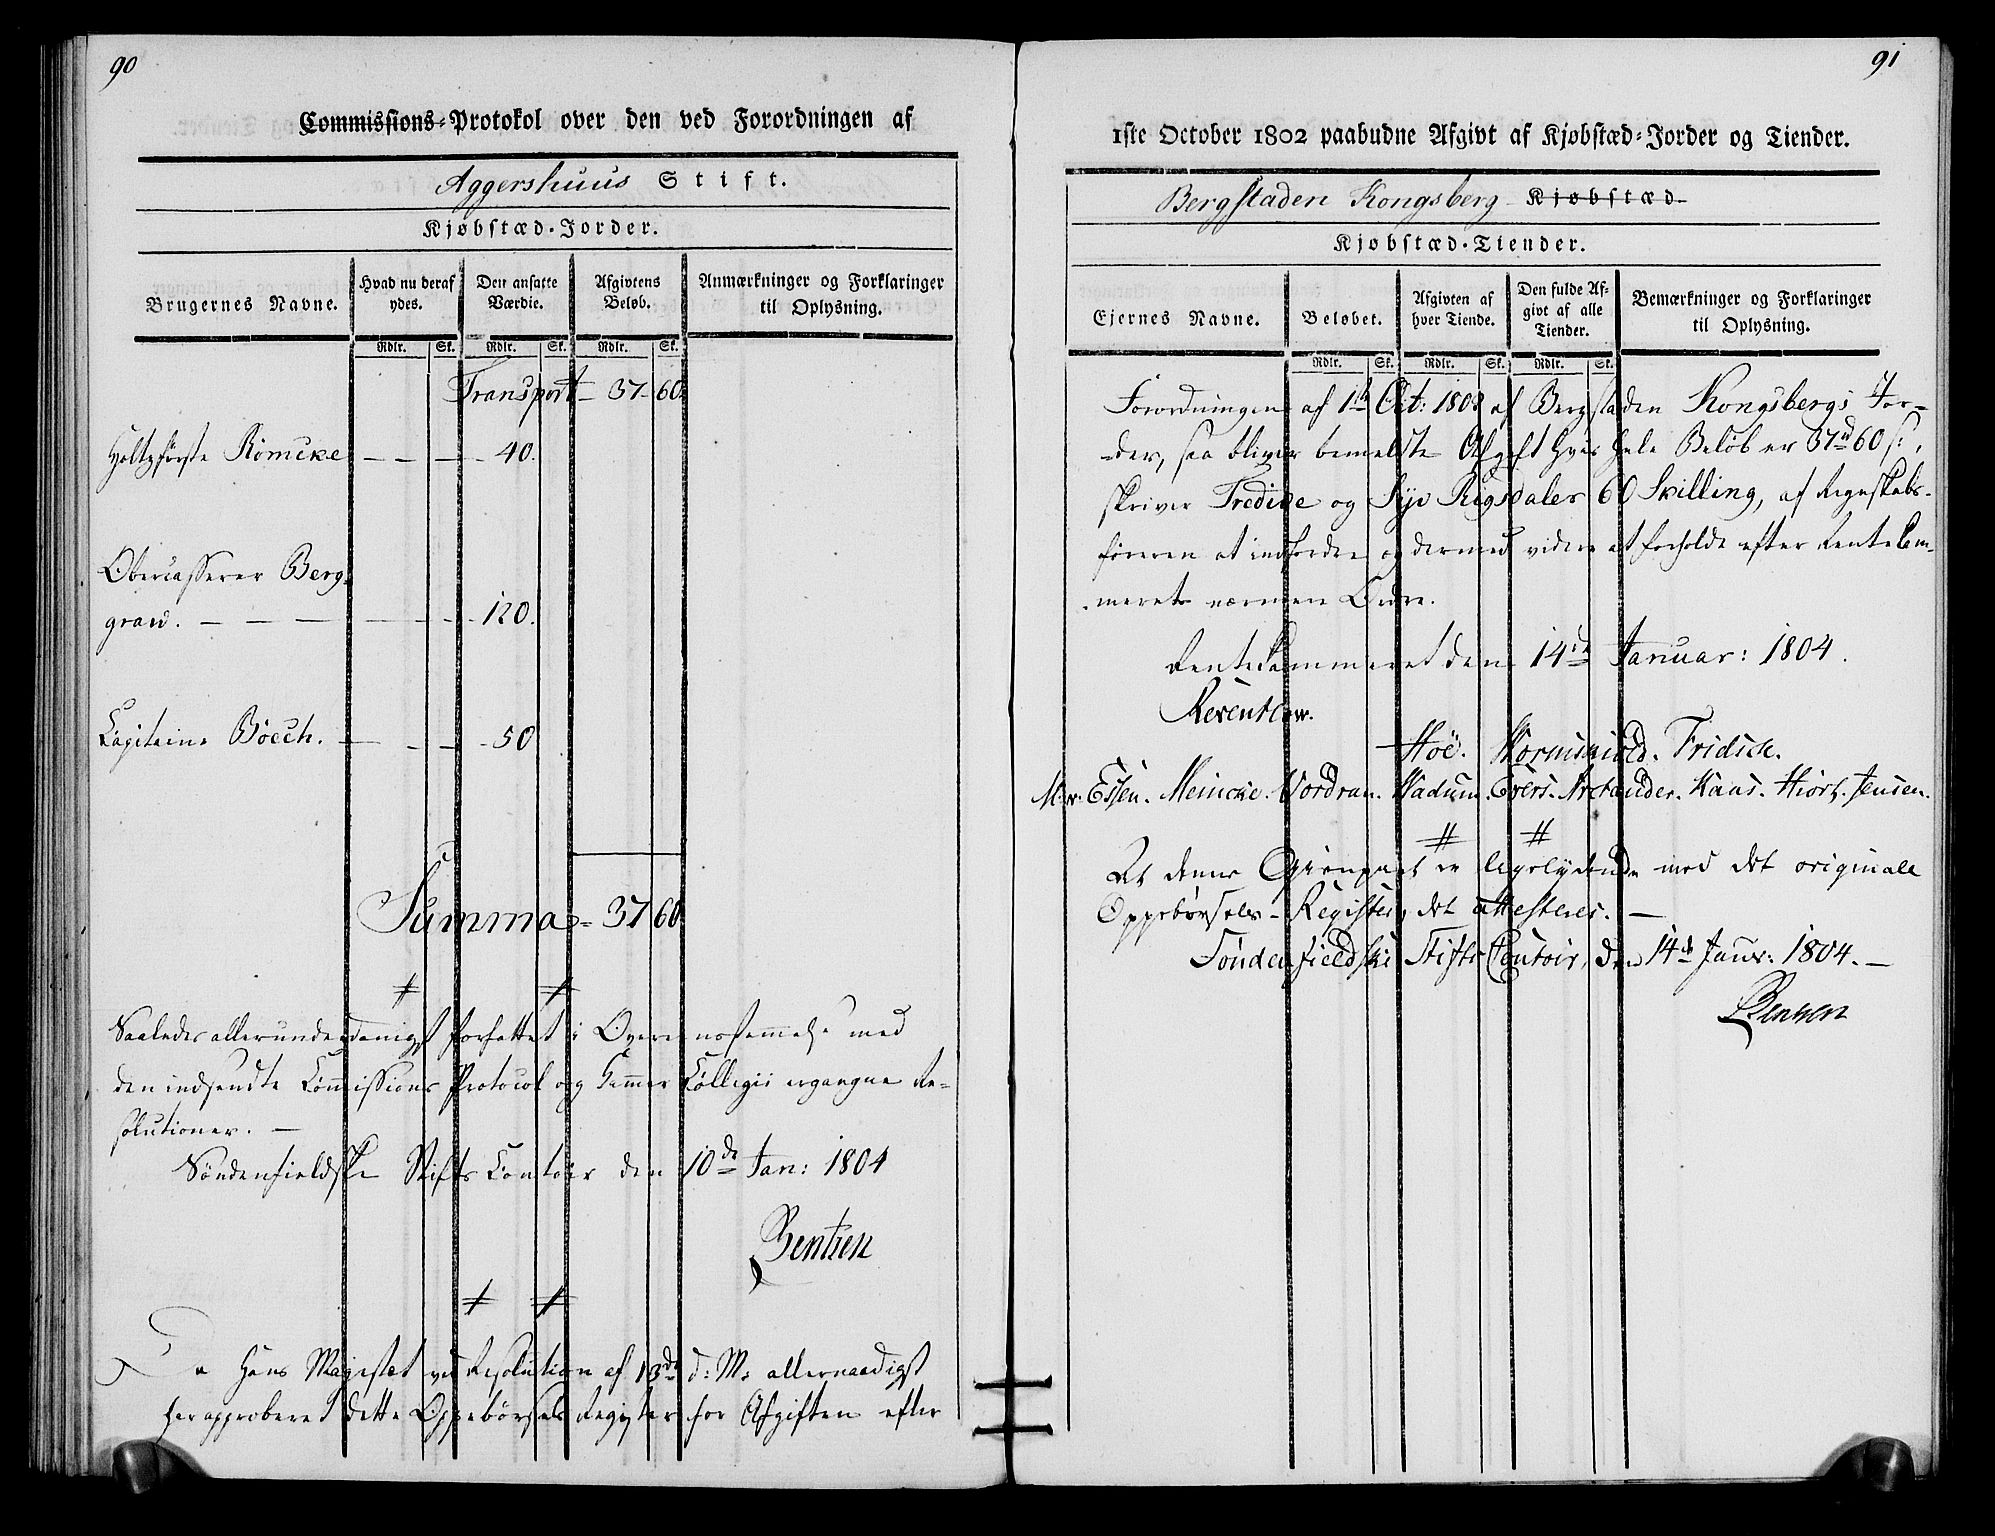 90
Commissions-Protokol over den ved Forordningen af
Aggershuus Stift.
Kjøbstæd-Jorder.
Brugernes Navne.
Hvad nu deraf ydes.
Den ansatte Værdie.
Afgivtens Beløb.
Anmærkninger og Forklaringer til Oplysning.
Rdlr. Sk. Rdlr. Sk. Rdlr. Sk.
Transport - 37 - 60.
Holtzförste Römcke - - - - 40.
Obercasserer Berg-
grav. - - - - - - 120.
Capitaine Böech. - - - - 50
Summa - 37 60
Saaledes allerunderdanigst forfattet i Overensstemmelse med
den indsendte Commissions Protocol og Cammer Collegii ergangne Re-
solutioner. -
Söndenfieldske Stifts Contoir den 10de Jan: 1804
Bentzen
Da Hans Majestæt ved Resolution af 13de d: M: allernaadigst
har approberet dette Oppebörsels Register for Afgiften efter
91
1ste October 1802 paabudne Afgivt af Kjøbstæd-Jorder og Tiender.
Bergstaden Kongsberg Kjøbstæd
Kjøbstæd-Tiender.
Ejernes Navne.
Beløbet.
Afgivten af hver Tiende.
Den fulde Afgivt af alle Tiender.
Bemærkninger og Forklaringer til Oplysning.
Rdlr. Sk. Rdlr. Sk. Rdlr. Sk.
Forordningen af 1ste Oct: 1802 af Bergstaden Kongsbergs Jor-
der, saa bliver bemeldte Afgift hvis hele Beløb er 37rd 60 s:,
skriver Tredive og Syv Rigsdaler 60 Skilling, af Regnskabs-
föreren at indfordre og dermed videre at forholde efter Rentekam-
merets nærmere Ordre.
Rentekammeret den 14de Januar: 1804.
Reventlow.
Hoë. Wormskiold. Fridsch.
Essen. Meincke. Vordran. Wadum. Evers. Arctander. Kaas. Hiort. Jensen.
At denne Gienpart er ligelydende med det originale
Oppebörsels-Register, det attesteres. -
Söndenfieldske Stifts Contoir, den 14de Janr: 1804. -
Bentzen